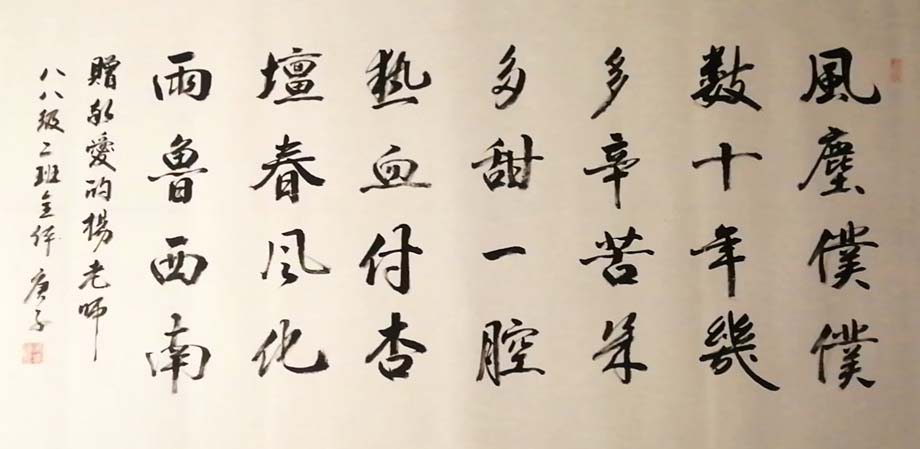 風塵僕僕
數十年幾
多辛苦幾
多甜一腔
熱血付杏
壇春風化
雨魯西南
贈敬愛的楊老師
八八級二班全体 庚子